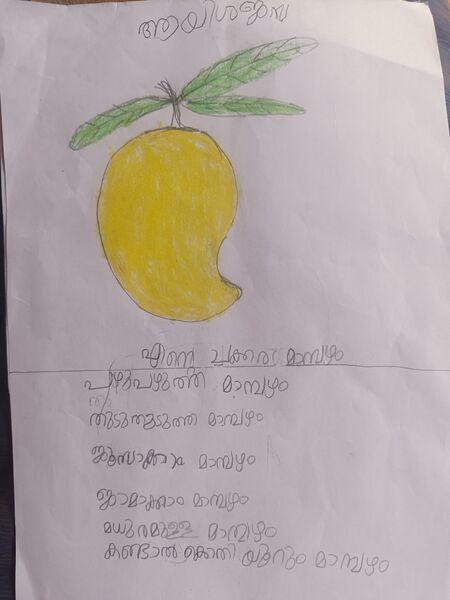 ആയിശജന്ന
എന്റെ ചക്കര മാമ്പഴം
പഴുപഴുത്ത മാമ്പഴം
തുടുതുടുത്ത മാമ്പഴം
ജ്യൂസാക്കാം മാമ്പഴം
ജാമാക്കാം മാമ്പഴം
മധുരമുള്ള മാമ്പഴം
കണ്ടാൽ കൊതിയൂറും മാമ്പഴം